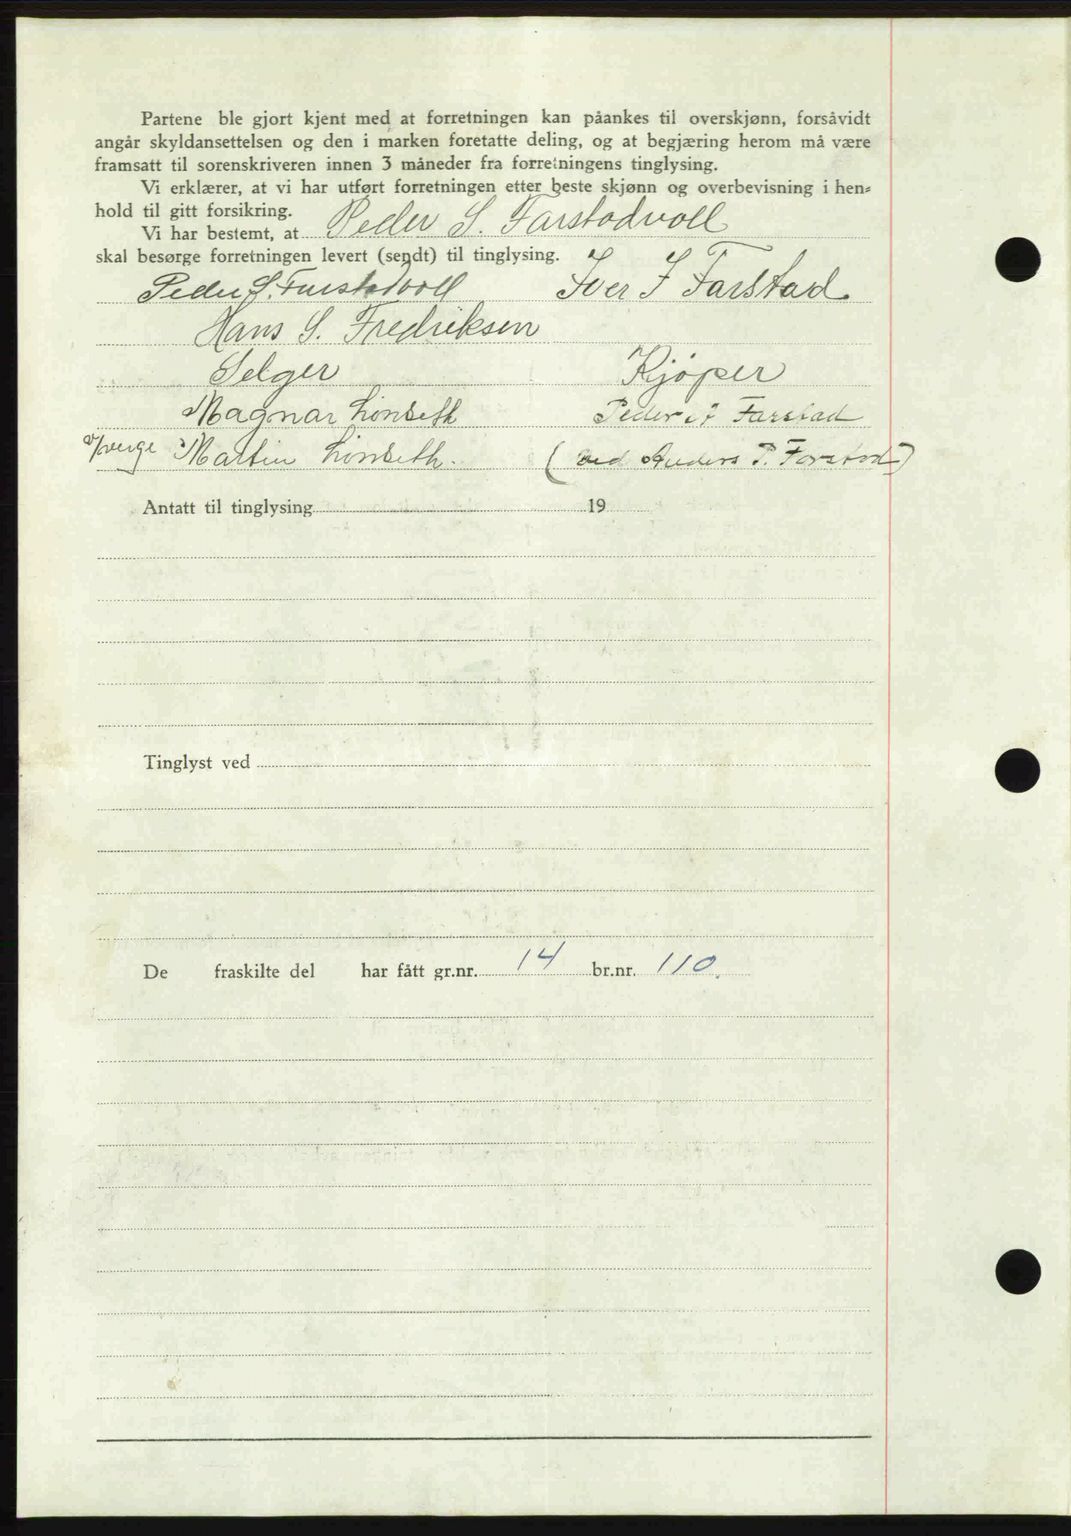 Partene ble gjort kjent med at forretningen kan påankes til overskjønn, forsåvidt
angår skyldansettelsen og den i marken foretatte deling, og at begjæring herom må være
framsatt til sorenskriveren innen 3 måneder fra forretningens tinglysing.
Vi erklærer, at vi har utført forretningen etter beste skjønn og overbevisning i hen=
hold til gitt forsikring.
Vi har bestemt, at Peder S. Farstadvoll
skal besørge forretningen levert (sendt) til tinglysing.
Peder S. Farstadvoll Iver J Farstad
Hans S. Fredriksen
Selger Kjøper
Magnar Lønseth Peder A Farstad
v/verge Martin Lønseth. (ved Anders P. Farstad)
Antatt til tinglysing 19
Tinglyst ved
De fraskilte del har fått gr.nr. 14 br.nr. 110.